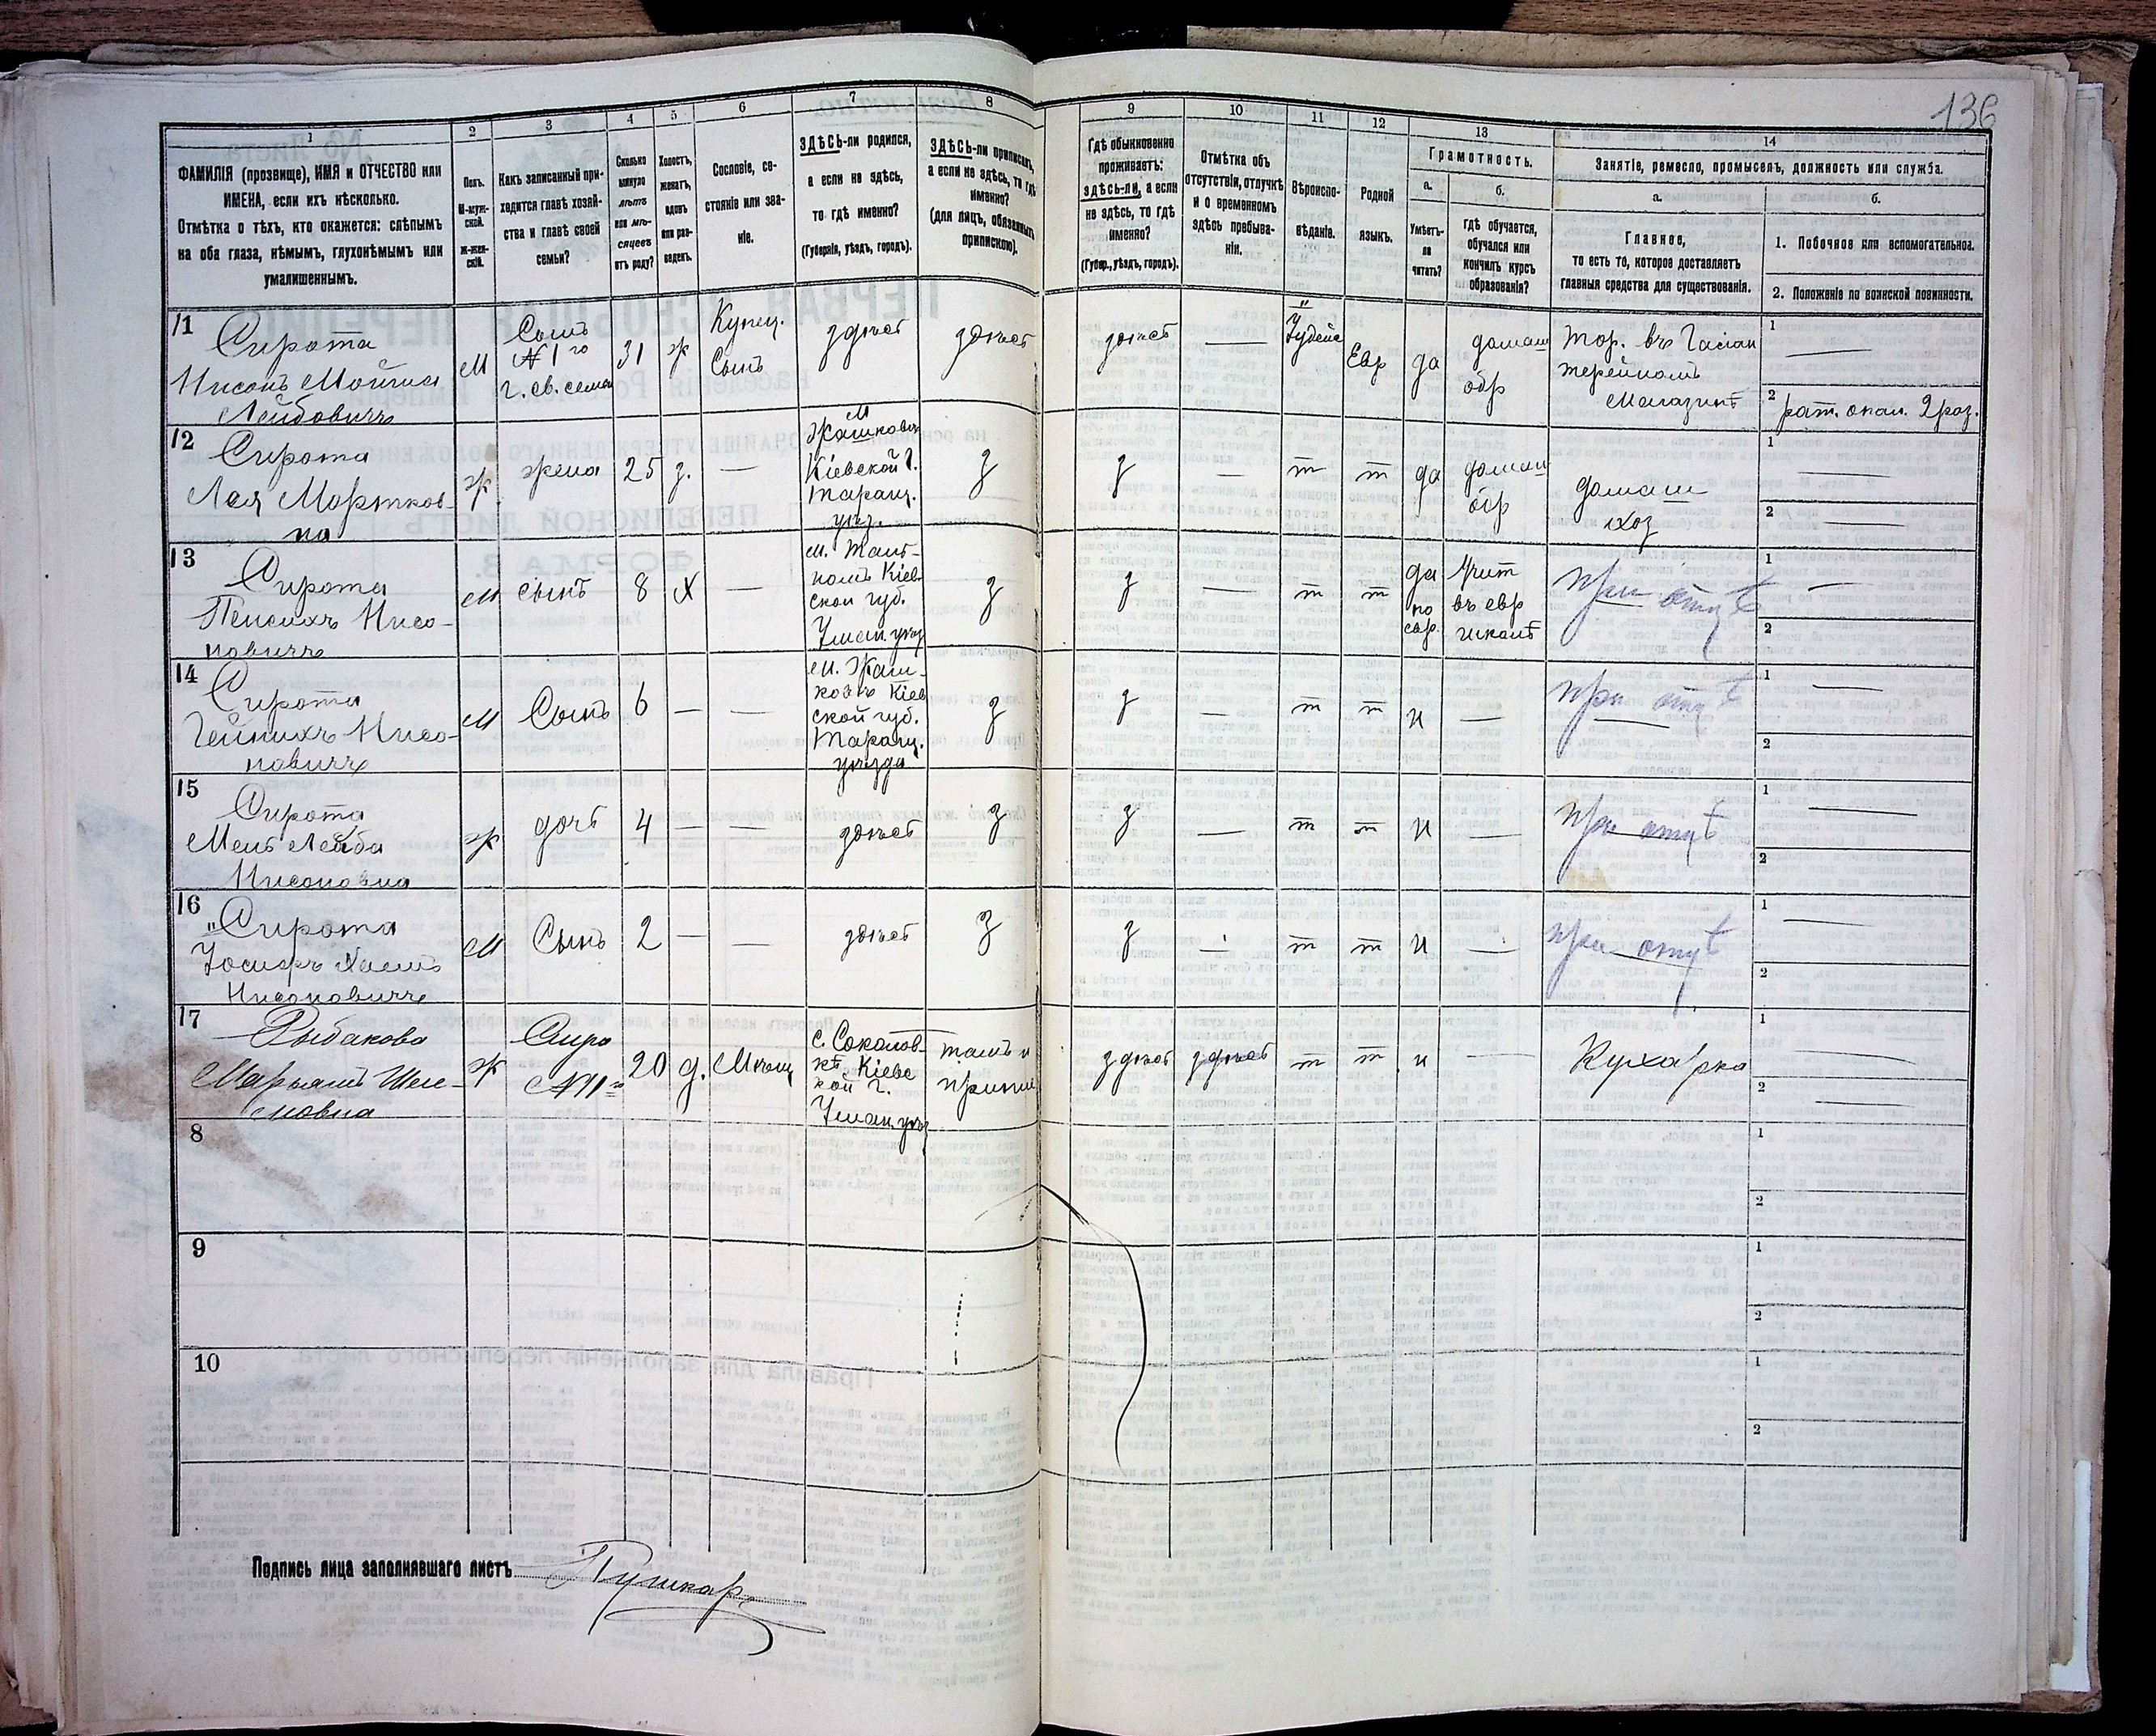 136
1
2
3
4
5
6
7
8
9
10
11
12
13
14
ФАМИЛІЯ (прозвище), ИМЯ и ОТЧЕСТВО или
ИМЕНА, если ихъ нѣсколько.
Отмѣтка о тѣхъ, кто окажется: слѣпымъ
на оба глаза, нѣмымъ, глухонѣмымъ или
умалишеннымъ.
Полъ.
М-муж-
ской.
Ж-жен-
скій.
Какъ записанный при-
ходится главѣ хозяй-
ства и главѣ своей
семьи?
Сколько
минуло
лѣтъ
или мѣ-
сяцевъ
отъ роду?
Холостъ,
женатъ,
вдовъ
или раз-
веденъ.
Сословіе, со-
стояніе или зва-
ніе.
ЗДѢСЬ-ли родился,
а если не здѣсь,
то гдѣ именно?
(Губернія, уѣздъ, городъ).
ЗДѢСЬ-ли приписанъ,
а если не здѣсь, то гдѣ
именно?
(для лицъ, обязанныхъ
припискою).
Гдѣ обыкновенно
проживаетъ:
здѣсь-ли, а если
не здѣсь, то гдѣ
именно?
(Губер., уѣздъ, городъ).
Отмѣтка объ
отсутствіи, отлучкѣ
и о временномъ
здѣсь пребыва-
ніи.
Вѣроиспо-
вѣданіе.
Родной
языкъ.
Грамотность.
а.
Умѣетъ-
ли
читать?
б.
гдѣ обучается,
обучался или
кончилъ курсъ
образованія?
Занятіе, ремесло, промыселъ, должность или служба.
а.
Главное,
то есть то, которое доставляетъ
главныя средства для существованія.
б.
1. Побочное или вспомогательное.
2. Положеніе по воинской повинности.
11
Сирота
Нисонъ Мойша
Лейбовичъ
М
Сынъ
№ 1го
г. св. семьи
31
ж
Купец.
Сынъ
здѣсь
здѣсь
здѣсь
—
Іудейс
Евр
да
домаш
обр
Тор. въ Галан
терейномъ
Магазинѣ
1 —
2 рат. опол. 2 раз.
12
Сирота
Лея Мортков-
на
ж
жена
25
з.
—
м
Жашковъ
Кіевской г.
Таращ.
уѣз.
з
з
—
т
т
да
домаш
обр
домаш
хоз
1 —
2 —
13
Сирота
Пейсихъ Нисо-
новичъ
М
сынъ
8
х
—
м. Таль-
номъ Кіев-
ской губ.
Уман. уѣз
з
з
—
т
т
да
по
евр.
Учит
въ евр
школѣ
при отцѣ
1 —
2
14
Сирота
Гейнихъ Нисо-
новичъ
М
Сынъ
6
—
—
м. Жаш-
ковъ Кіев
ской губ.
Таращ.
уѣзда
з
з
—
т
т
н
—
при отцѣ
1 —
2
15
Сирота
Нисоновна
ж
дочь
4
—
—
здѣсь
з
з
—
т
т
н
—
при отцѣ
1 —
2
16
Сирота
Іосифъ Хаимъ
Нисоновичъ
М
Сынъ
2
—
—
здѣсь
з
з
—
т
т
н
—
при отцѣ
1 —
2
17
Рыбакова
Марьямъ Шле-
мовна
Ж
№ 11
20
д.
Мѣщ
с. Соколов-
кѣ, Кіевс
кой г.
Уман. уѣз
тамъ и
припис
здѣсь
здѣсь
т
т
н
—
Кухарка
1 —
2 —
8
1
2
9
1
2
10
1
2
Подпись лица заполнявшаго листъ Пушкар